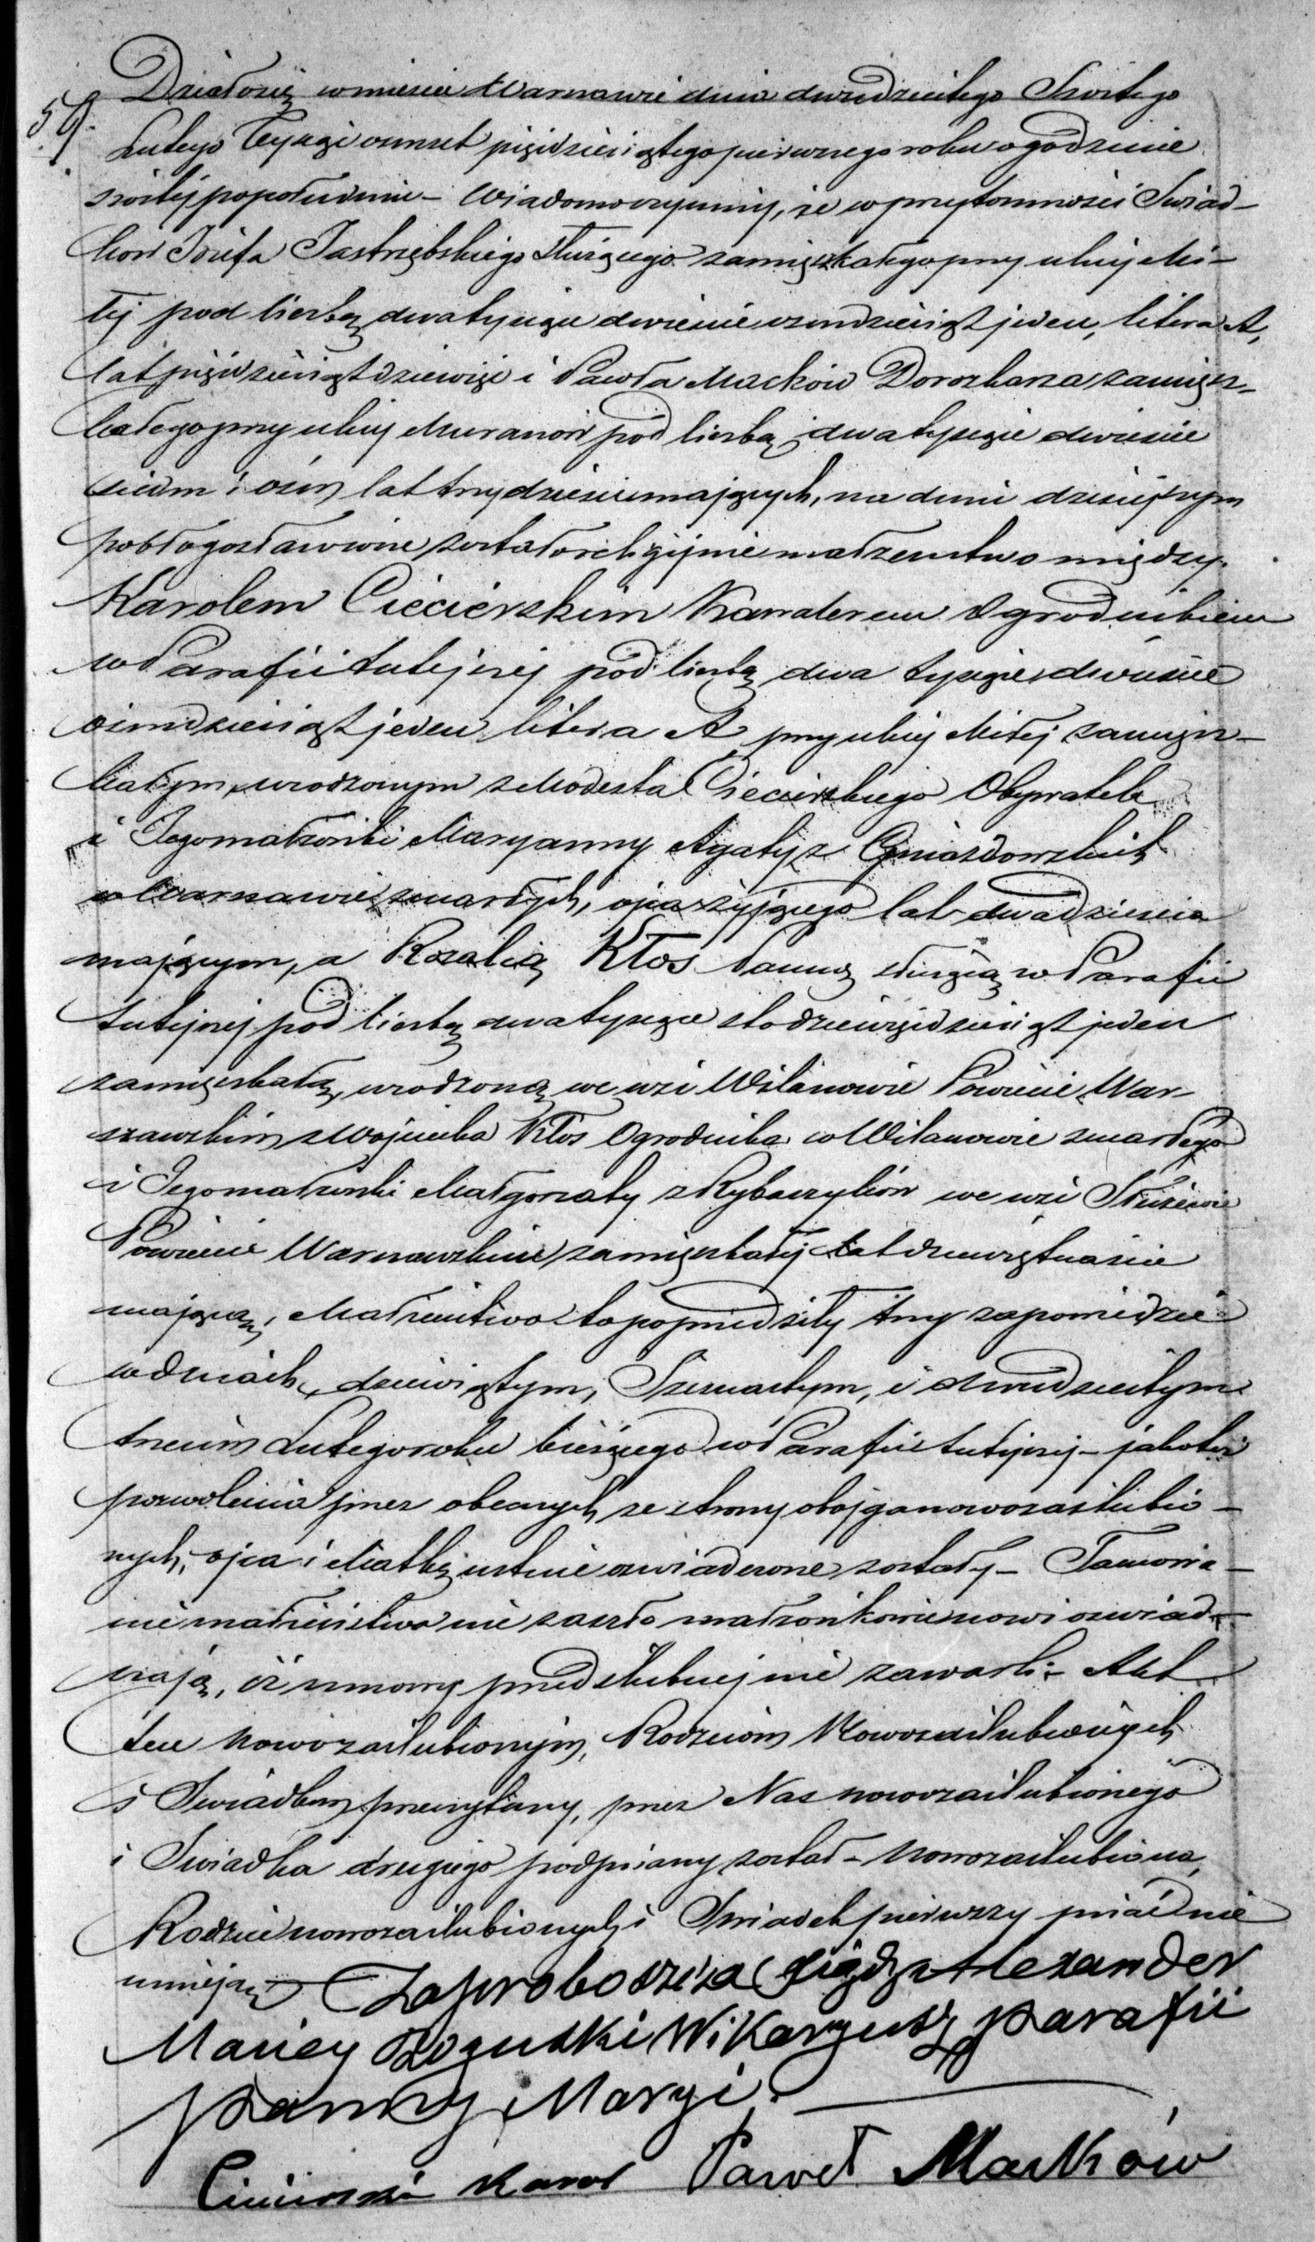 59.
Działo się w mieście Warszawie dnia dwudziestego Szóstego
Lutego Tysiąc ośmset pięćdziesiątego pierwszego roku o godzinie
szóstej popołudniu – Wiadomo czynimy, że w przytomności Świad–
ków Józefa Jastrzębskiego Służącego zamięszkałego przy ulicy Mi–
łéj pod liczbą dwa tysiące dwieście ośmdziesiąt jeden, litera A,
lat pięćdziesiąt dziewięć i Pawła Maćków Dorożkarza zamięsz–
kałego przy ulicy Muranów pod liczbą dwa tysiące dwieście
siedm i ośm lat trzydzieści mających, na dniu dzisiejszym
pobłogosławione zostało religijnie małżeństwo między
Karolem Ciecierskim Kawalerem Ogrodnikiem
w Parafii tutejszej pod liczbą dwa tysiące dwieście
ośmdziesiąt jeden litera A przy ulicy Miłej zamięsz–
kałym, urodzonym z Modesta Ciecierskiego Obywatela
i Jego małżonki Maryanny Agaty z Gniazdowskich
w Warszawie zmarłych, ojca żyjącego lat dwadzieścia
mającym, a Rozalią Kłos Panną służącą w Parafii
tutejszej pod liczbą dwa tysiące sto dziewięćdziesiąt jeden
zamięszkałą, urodzoną we wsi Wilanowie Powiecie War–
szawskim z Wojciecha Kłos Ogrodnika w Wilanowie zmarłego
i Jego małżonki Małgorzaty z Rybaczyków we wsi Służewie
Powiecie Warszawskim zamięszkałéj lat dziewiętnaście
mającą, Małżeństwo to poprzedziły trzy zapowiedzie
w dniach, dziewiątym, Szesnastym, i dwudziestym
trzecim Lutego roku bieżącego w Parafii tutejszej – jakoteż
pozwolenia przez obecnych ze strony obojga nowozaślubio–
nych, ojca i Matkę ustnie oświadczone zostały – Tamowa–
nie małżeństwa nie zaszło małżonkowie nowi oświad–
czają, iż umowy przedślubnej nie zawarli – Akt
ten Nowozaślubionym, Rodzicom Nowozaślubionych
i Świadkom przeczytany, przez Nas nowozaślubionego
i Świadka drugiego podpisany został – Nowozaślubiona,
Rodzice nowozaślubionych i Świadek pierwszy pisać nie
umieją – Za proboszcza Xiądz Alexander
Maciey Rogulski Wikaryusz parafii
Panny Maryi.
Ciecierski Karol Paweł Maćków